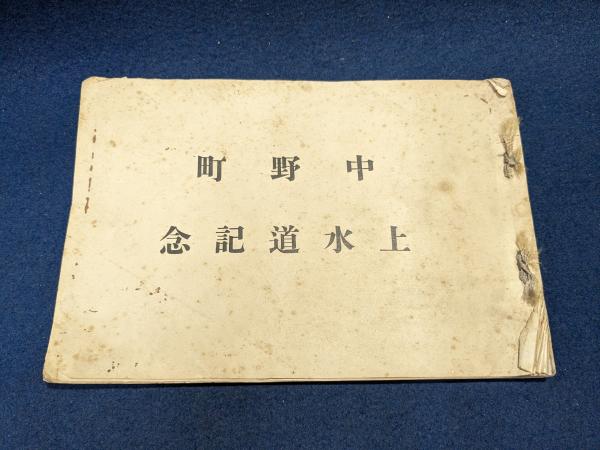 中野町
上水道記念